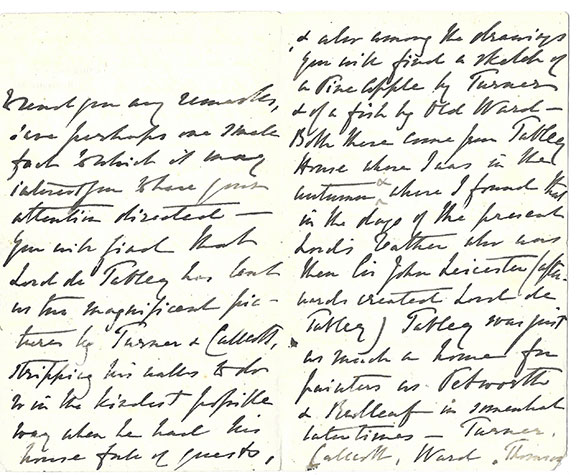 to send you any remarks,
save perhaps one small
fact to which it may
interest you to have your
attention directed —
You will find that
Lord de Tabley has lent
us two magnificent pic-
tures by Turner & Callcott,
stripping his walls to do
so in the kindest possible
way when he had his
house full of guests,
& also among the drawings
you will find a sketch of
a Pine Apple by Turner
& of a fish by Old Ward —
Both these come from Tabley
House where I was in the
autumn & where I found that
in the days of the present
Lord's Father who was
then Sir John Leicester (after-
wards created Lord de
Tabley) Tabley was just
as much a home for
painters as Petworth
& Redleaf in somewhat
later times — Turner,
Callcott, Ward, Thomson